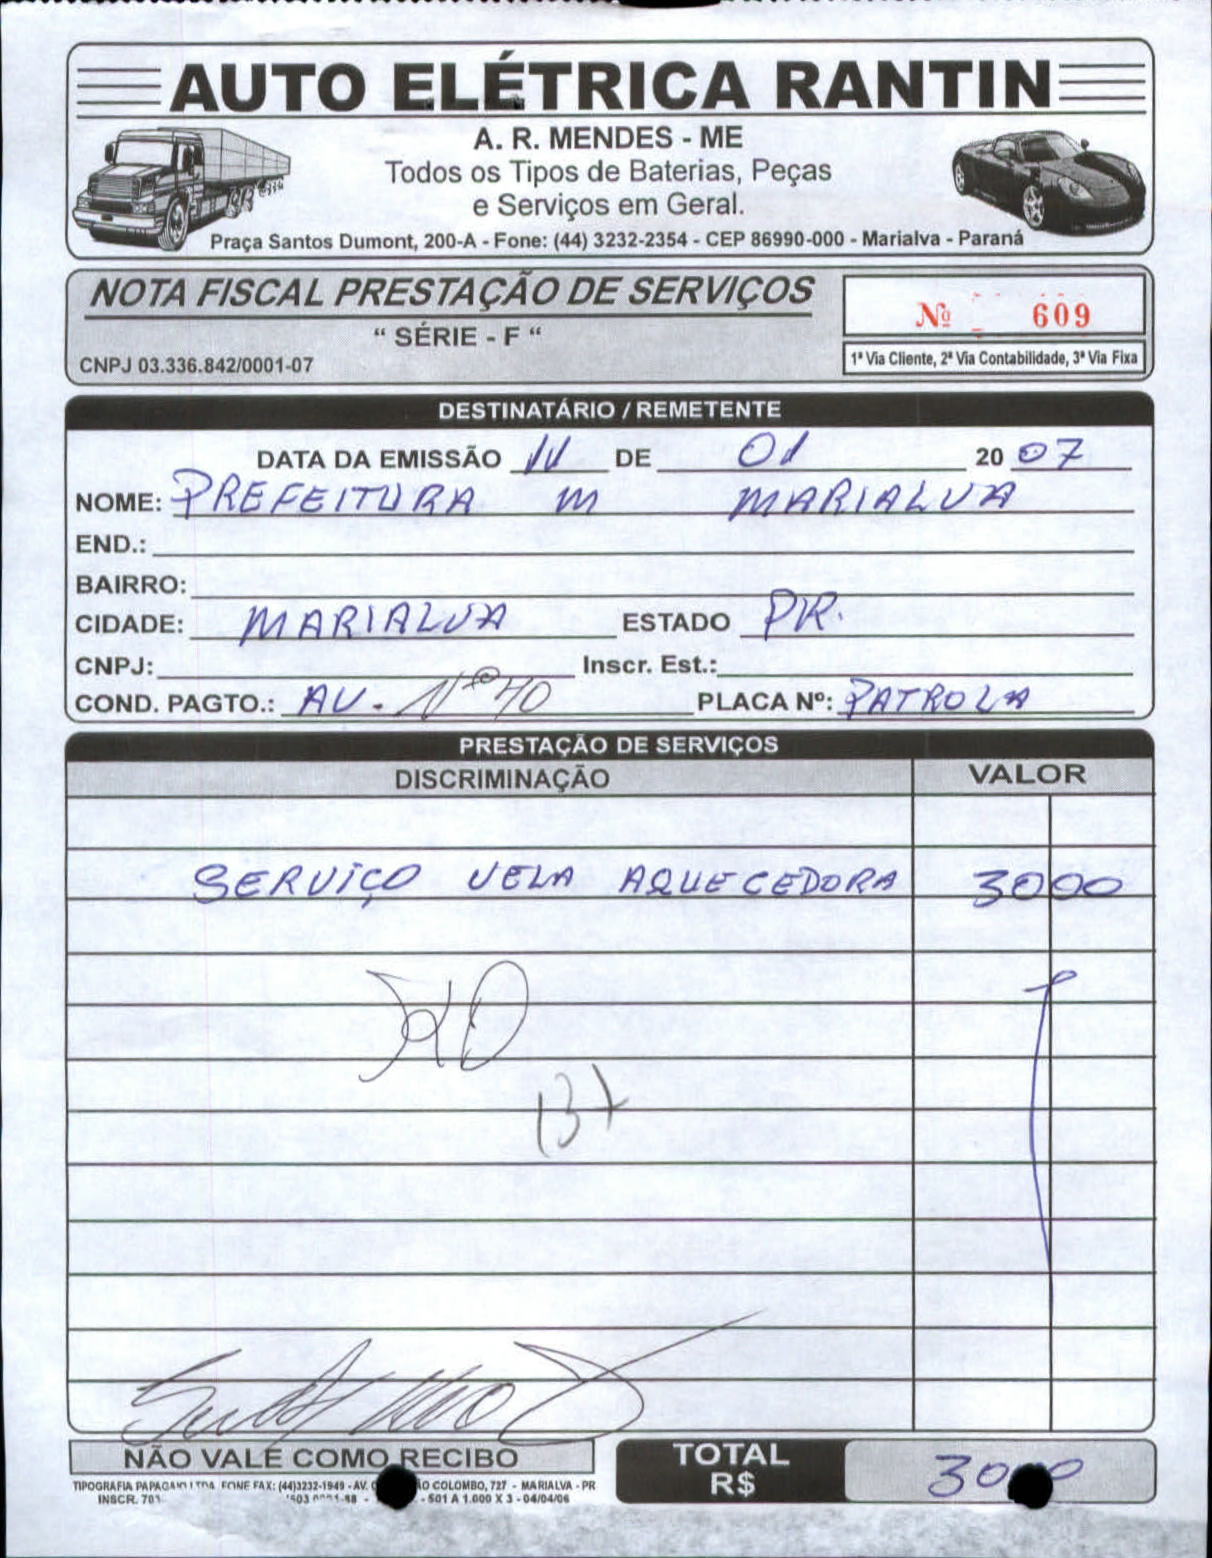 AUTO ELÉTRICA RANTIN
A. R. MENDES - ME
Todos os Tipos de Baterias, Peças
e Serviços em Geral.
Praça Santos Dumont, 200-A - Fone: (44) 3232-2354 - CEP 86990-000 - Marialva - Paraná
NOTA FISCAL PRESTAÇÃO DE SERVIÇOS
“ SÉRIE - F “
CNPJ 03.336.842/0001-07
Nº 609
1ª Via Cliente, 2ª Via Contabilidade, 3ª Via Fixa
DESTINATÁRIO / REMETENTE
DATA DA EMISSÃO 11 DE 01 20 07
NOME: PREFEITURA M MARIALVA
END.:
BAIRRO:
CIDADE: MARIALVA ESTADO PR.
CNPJ: Inscr. Est.:
COND. PAGTO.: AV. Nº 40 PLACA Nº: PATROLA
PRESTAÇÃO DE SERVIÇOS
DISCRIMINAÇÃO VALOR
SERVIÇO VELA AQUECEDORA 3000
NÃO VALE COMO RECIBO
TOTAL
R$
TIPOGRAFIA PAPAGAIO LTDA. FONE FAX: (44)3232-1949 - AV. COLOMBO, 727 - MARIALVA - PR
INSCR. - 501 A 1.000 X 3 - 04/04/06